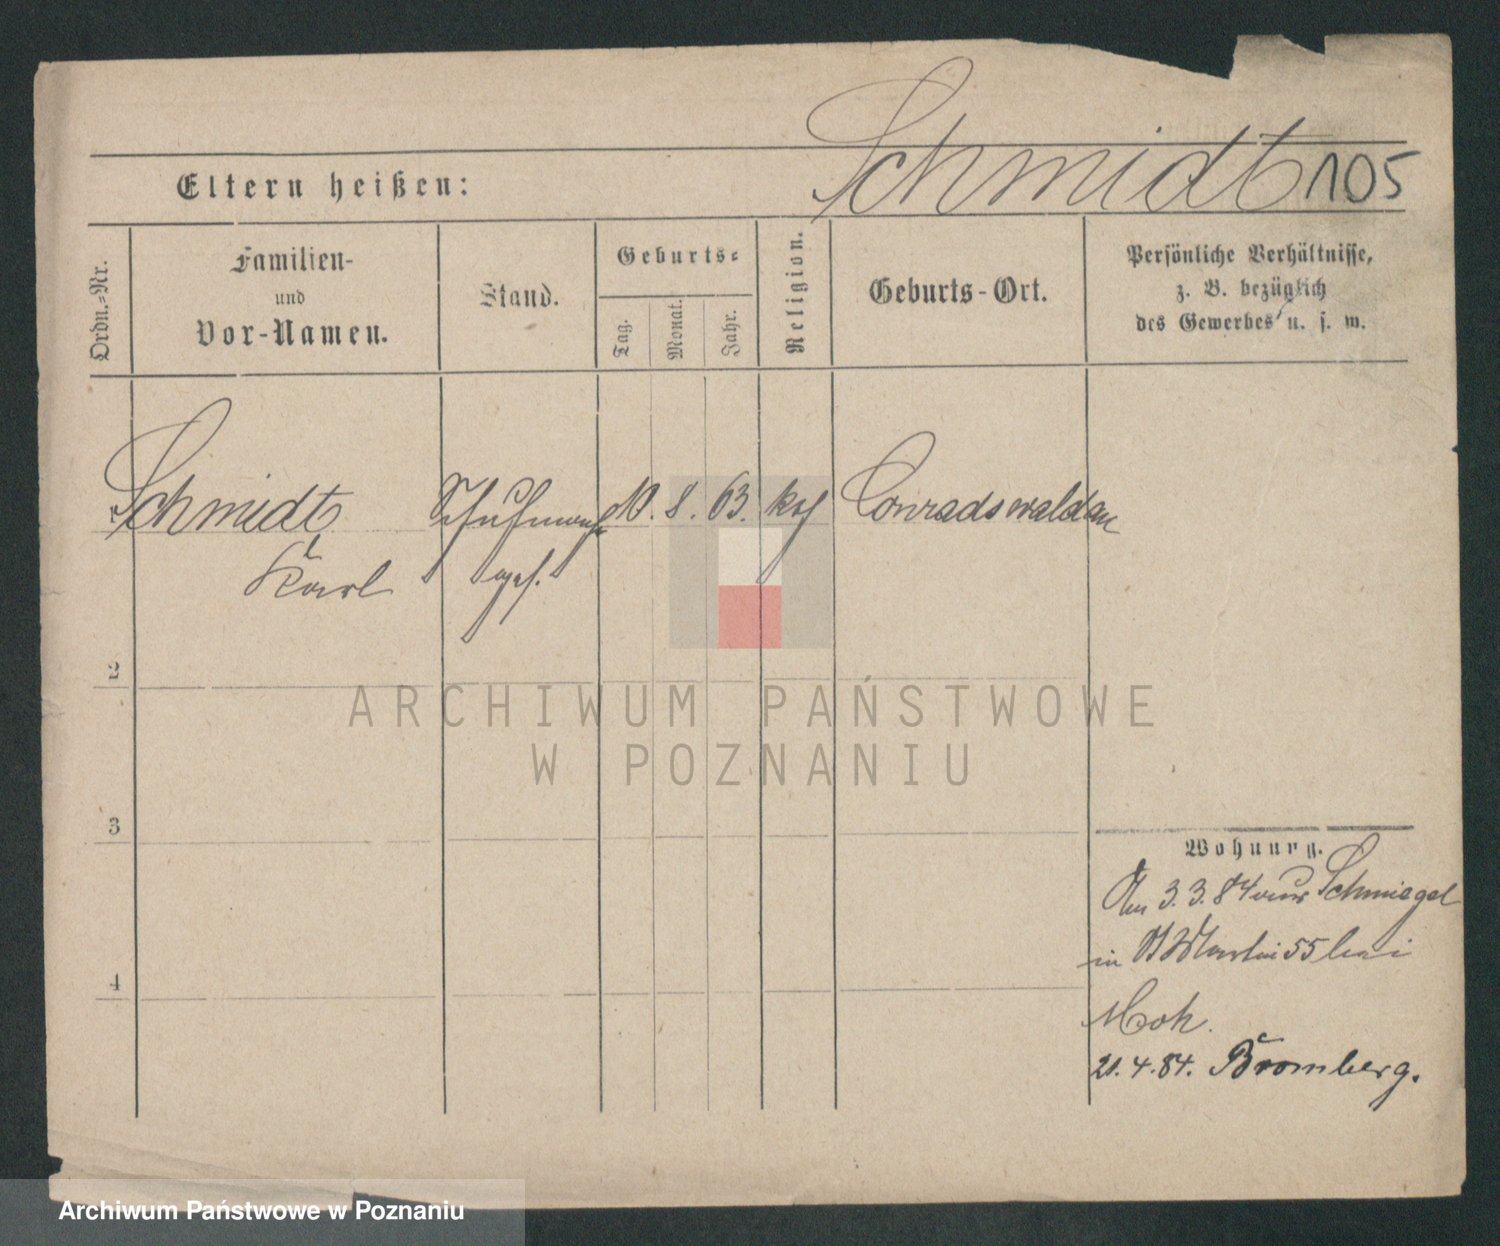 Schmidt 105
Eltern heißen:
Ordn.=Nr.
Familien-
und
Vor-Namen.
Stand.
Geburts=
Tag.
Monat.
Jahr.
Religion.
Geburts-Ort.
Persönliche Verhältnisse,
z. B. bezüglich
des Gewerbes u. s. w.
Schmidt
Karl
Schuhmach
ges.
10. 8. 63.
kth
Conradswaldau
2
3
4
Wohnung.
Am 3. 3. 84 aus Schmiegel
in St Martin 55 bei
Hoh.
21. 4. 84. Bromberg.
ARCHIWUM PAŃSTWOWE
W POZNANIU
Archiwum Państwowe w Poznaniu